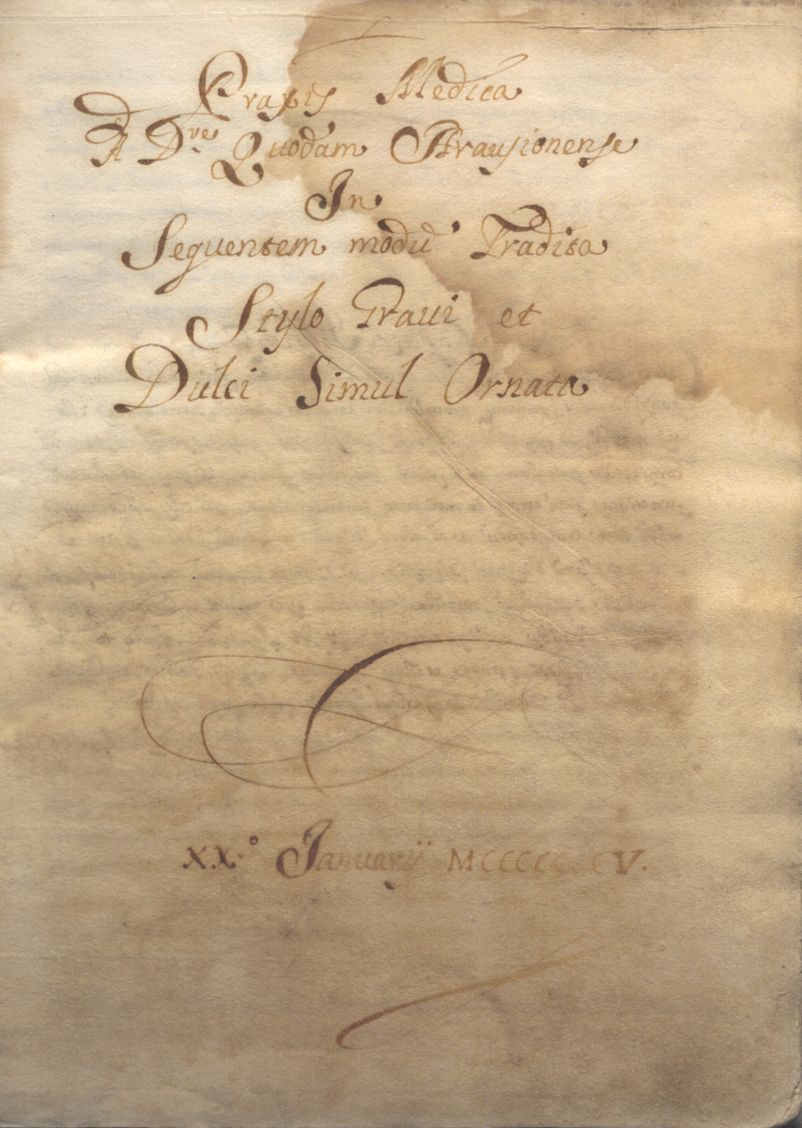 Praxis Medica
A Dre Quodam Arausionense
In
Sequentem modū Tradita
Stylo Gravi et
Dulci Simul Ornata
XX.º Januarÿ